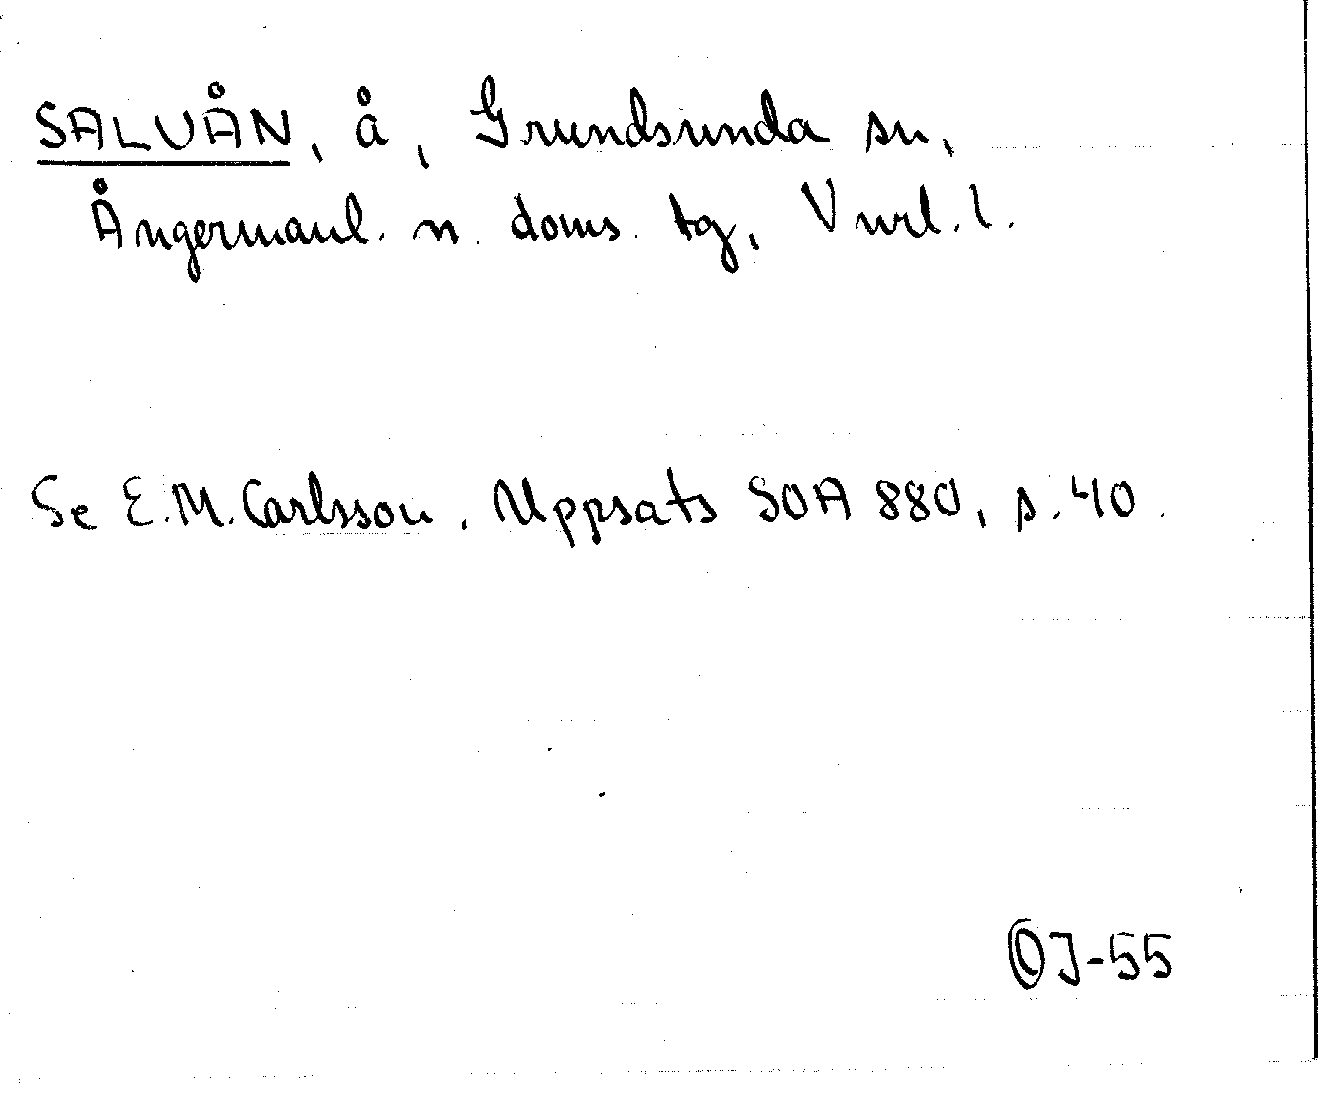 SALVÅN, å, Grundsunda sn,
Ångermanl. n. doms. tg, Vnrl. l.
Se E.M. Carlsson, Uppsats SOA 880, s. 40.
OJ-55